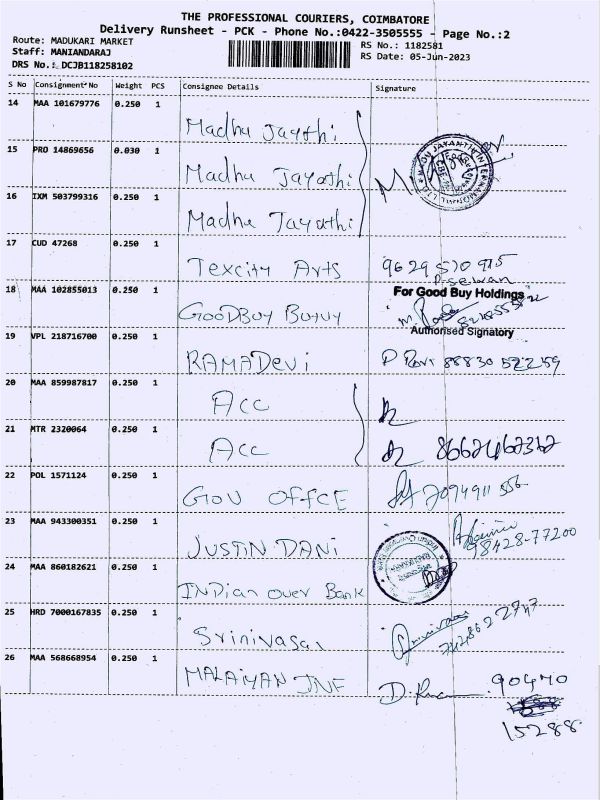 THE PROFESSIONAL COURIERS, COIMBATORE
Delivery Runsheet - PCK - Phone No.:0422-3505555 - Page No.:2
Route: MADUKARI MARKET
RS No.: 1182581
Staff: MANIANDARAJ
RS Date: 05-Jun-2023
DRS No.: DCJB118258102
S No Consignment No Weight PCS Consignee Details Signature
14 MAA 101679776 0.250 1 Madhu Jayathi
15 PRO 14869656 0.030 1 Madhu Jayathi
16 IXM 503799316 0.250 1 Madhu Jayathi
17 CUD 47268 0.250 1 Texcity Arts 9629570915
18 MAA 102855013 0.250 1 GOODBUY
For Good Buy Holdings
Authorised Signatory
19 VPL 218716700 0.250 1 RAMADevi P Ravi 88830 52259
20 MAA 859987817 0.250 1 Acc
21 MTR 2320064 0.250 1 Acc
22 POL 1571124 0.250 1 GOV OFFCE 7094911556
23 MAA 943300351 0.250 1 JUSTIN DANI 98428-77200
24 MAA 860182621 0.250 1 INDian over Bank
25 HRD 7000167835 0.250 1 Srinivasan
26 MAA 568668954 0.250 1 MALAIYAN JNF 90470
15288